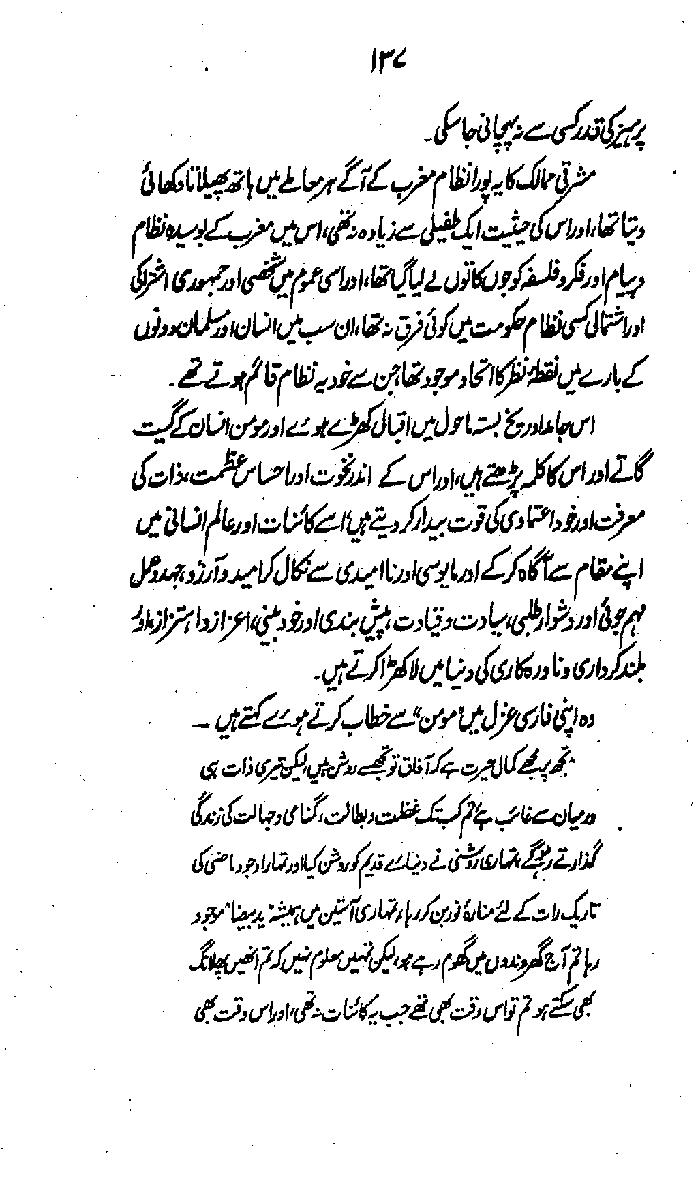 ۱۳۷
پر ہیز کی قدر کسی سے نہ پہچانی جا سکی۔
مشرقی ممالک کا یہ پورا نظام مغرب کے آگے ہر معاملے میں ہاتھ پھیلاتا دکھائی
دیتا تھا، اور اس کی حیثیت ایک طفیلی سے زیادہ نہ تھی، اس میں مغرب کے بوسیدہ نظام
و پیام اور فکر و فلسفہ کو جوں کا توں لے لیا گیا تھا، اور اسی عموم میں شخصی اور جمہوری اشتراکی
اور اشتمالی کسی نظام حکومت میں کوئی فرق نہ تھا، ان سب میں انسان اور مسلمان دونوں
کے بارے میں نقطۂ نظر کا اتحاد موجود تھا، جن سے خود یہ نظام قائم ہوتے تھے۔
اس جامد اور یخ بستہ ماحول میں اقبال کھڑے ہوئے اور مومن انسان کے گیت
گاتے اور اس کا کلمہ پڑھتے ہیں، اور اس کے اندر نخوت اور احساس عظمت، ذات کی
معرفت اور خود اعتمادی کی قوت بیدار کر دیتے ہیں، اسے کائنات اور عالم انسانی میں
اپنے مقام سے آگاہ کر کے اور مایوسی اور نا امیدی سے نکال کر امید و آرزو، جہد و عمل
مہم جوئی اور دشوار طلبی، سیادت و قیادت، پیش بندی اور خود بینی، اعزاز و اہتزاز، اور
بلند کرداری و نادرہ کاری کی دنیا میں لا کھڑا کرتے ہیں۔
وہ اپنی فارسی غزل میں "مومن" سے خطاب کرتے ہوئے کہتے ہیں ــ
تجھ پر مجھے کمال حیرت ہے کہ آفاق تو تجھ سے روشن ہیں، لیکن تیری ذات ہی
درمیان سے غائب ہے، تم کب تک غفلت و بطالت، گمنامی و جہالت کی زندگی
گذارتے رہو گے، تمہاری روشنی نے دنیائے قدیم کو روشن کیا اور تمہارا وجود ماضی کی
تاریک رات کے لئے منارۂ نور بن کر رہا، تمہاری آستین میں ہمیشہ "ید بیضا" موجود
رہا تم آج گھروندوں میں گھوم رہے ہو، لیکن تمہیں معلوم نہیں کہ تم انھیں پھلانگ
بھی سکتے ہو تم تو اس وقت بھی تھے جب یہ کائنات نہ تھی، اور اس وقت بھی